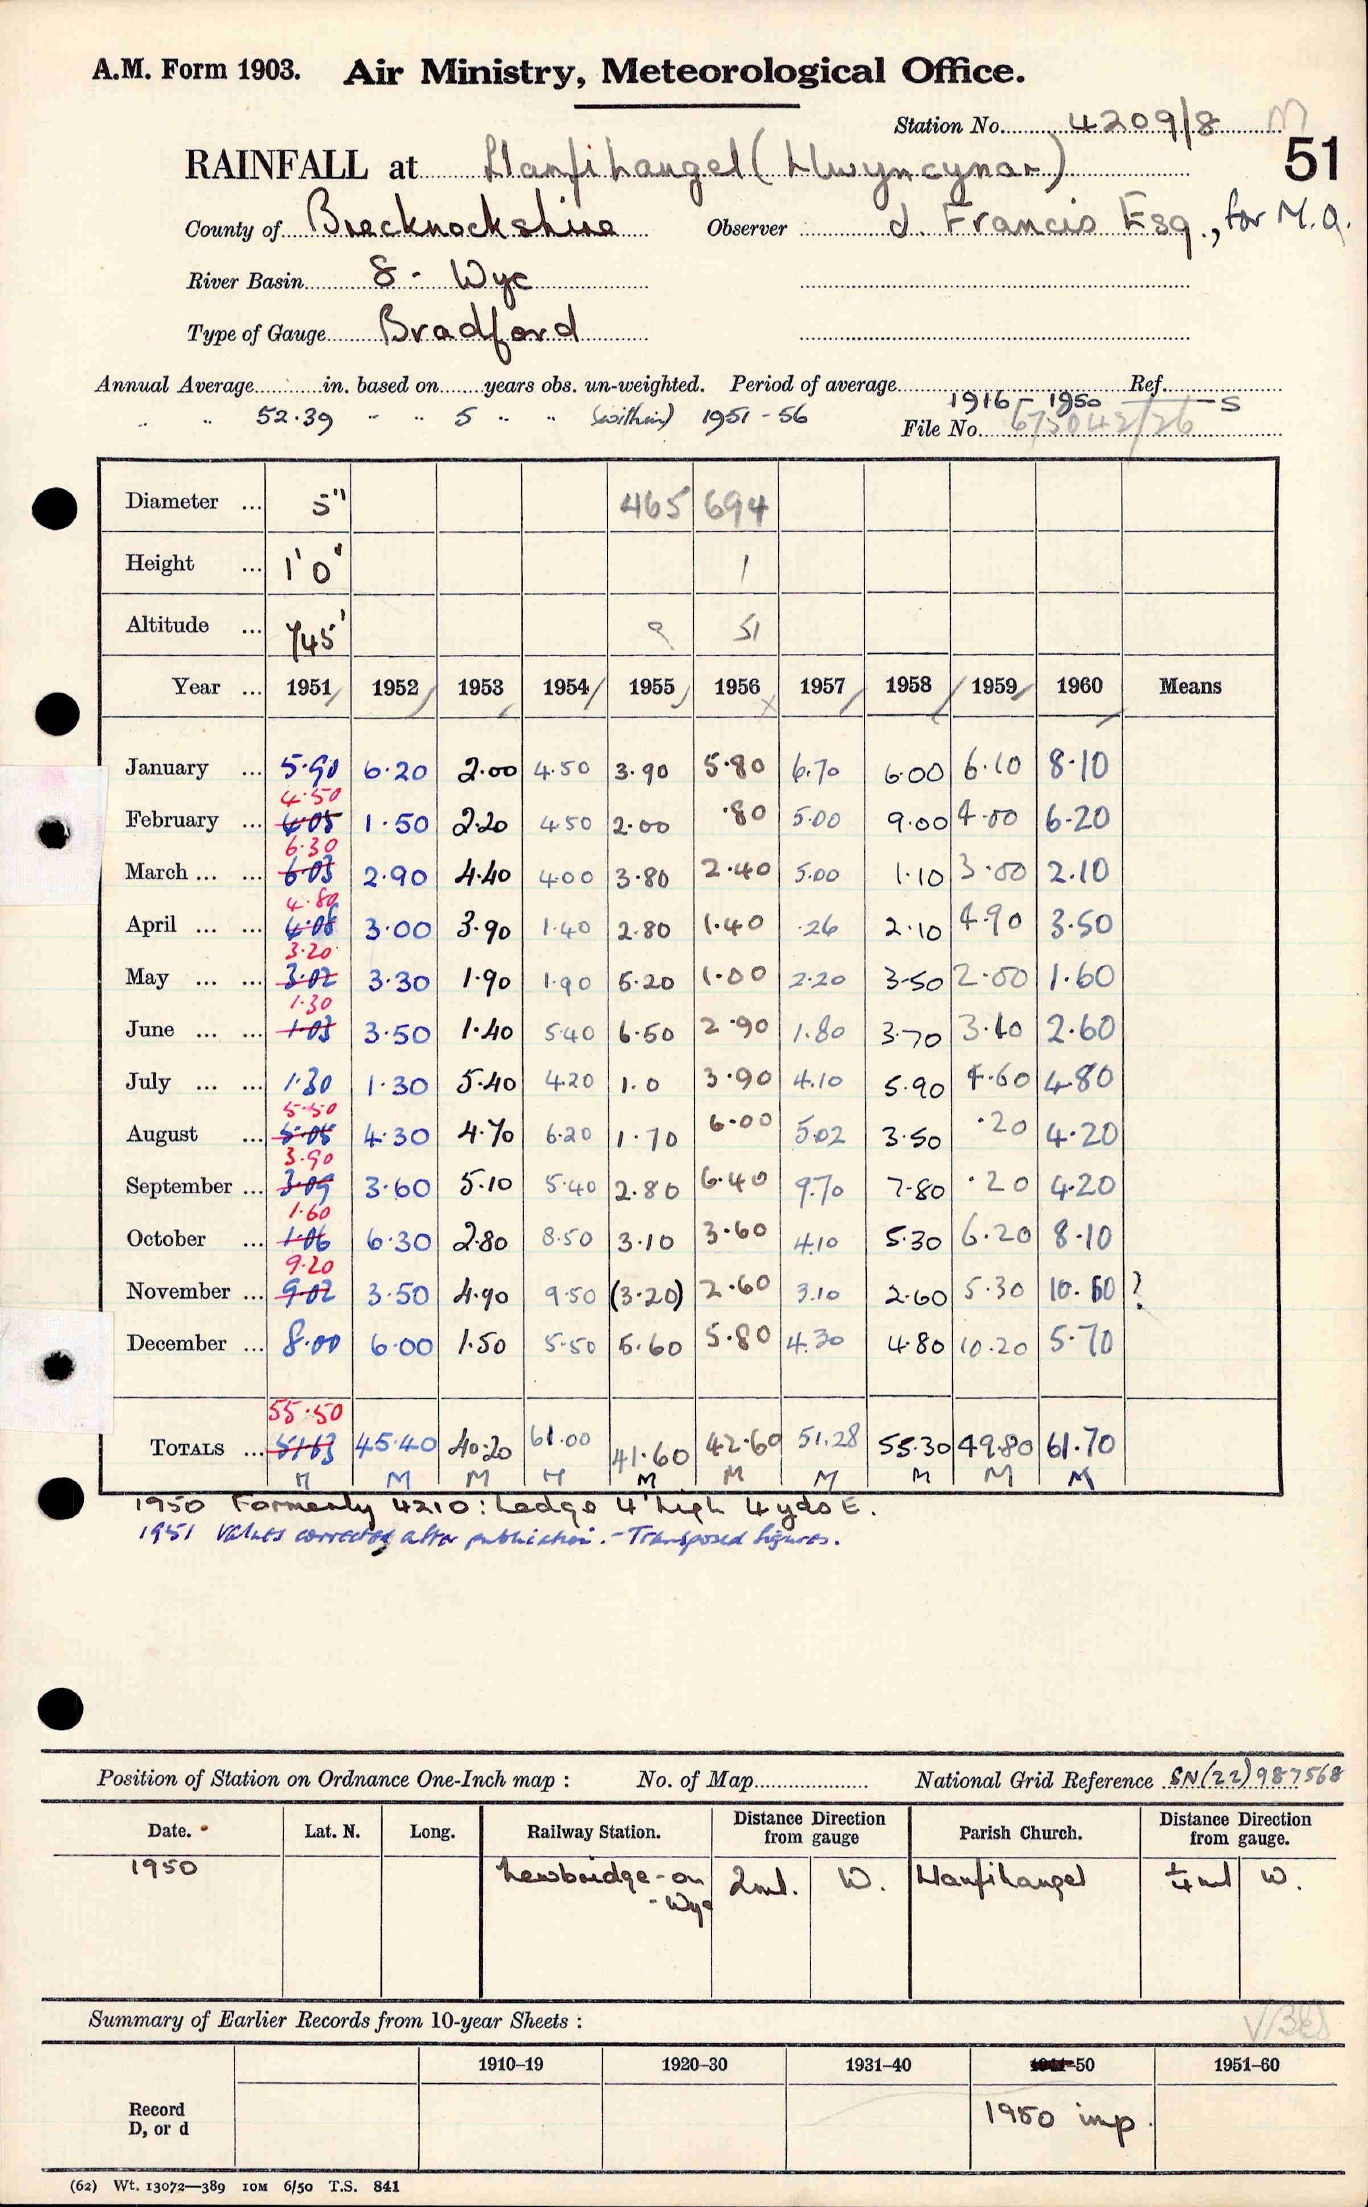 A.M. Form 1903. Air Ministry, Meteorological Office.
Station No. 4209/8 M
51
RAINFALL at Llanfihangel (Llwyncynor)
County of Brecknockshire Observer J. Francis Esq., for M.A.
River Basin 8 - Wye
Type of Gauge Bradford
Annual Average in. based on years obs. un-weighted. Period of average 1916 - 1950 Ref. S
" " 52.39 " " 5 " " (within) 1951-56 File No. 675042/26
Diameter ... 5" 465 694
Height ... 1'0" 1
Altitude ... 745' 9 51
Year ... 1951 1952 1953 1954 1955 1956 1957 1958 1959 1960 Means
January ... 5.90 6.20 2.00 4.50 3.90 5.80 6.70 6.00 6.10 8.10
4.50
February ... 4.05 1.50 2.20 4.50 2.00 .80 5.00 9.00 4.00 6.20
6.30
March ... ... 6.03 2.90 4.40 4.00 3.80 2.40 5.00 1.10 3.00 2.10
4.80
April ... ... 4.08 3.00 3.90 1.40 2.80 1.40 .26 2.10 4.90 3.50
3.20
May ... ... 3.02 3.30 1.90 1.90 5.20 1.00 2.20 3.50 2.00 1.60
1.30
June ... ... 1.03 3.50 1.40 5.40 6.50 2.90 1.80 3.70 3.10 2.60
July ... ... 1.30 1.30 5.40 4.20 1.0 3.90 4.10 5.90 4.60 4.80
5.50
August ... 5.05 4.30 4.70 6.20 1.70 6.00 5.02 3.50 .20 4.20
3.90
September ... 3.09 3.60 5.10 5.40 2.80 6.40 9.70 7.80 .20 4.20
1.60
October ... 1.06 6.30 2.80 8.50 3.10 3.60 4.10 5.30 6.20 8.10
9.20
November ... 9.02 3.50 4.90 9.50 (3.20) 2.60 3.10 2.60 5.30 10.60 ?
December ... 8.00 6.00 1.50 5.50 5.60 5.80 4.30 4.80 10.20 5.70
55.50
TOTALS ... 51.63 45.40 40.20 61.00 41.60 42.60 51.28 55.30 49.80 61.70
M M M M M M M M M M
1950 Formerly 4210: Ledge 4' high 4 yds E.
1951 Values corrected after publication. - Transposed figures.
Position of Station on Ordnance One-Inch map : No. of Map National Grid Reference SN(22)987568
Date. Lat. N. Long. Railway Station. Distance from gauge Direction Parish Church. Distance from gauge. Direction
1950 Newbridge-on-Wye 2ml. W. Llanfihangel ¼ml W.
Summary of Earlier Records from 10-year Sheets :
1910–19 1920–30 1931–40 1941–50 1951–60
Record D, or d 1950 imp.
(62) Wt. 13072—389 10M 6/50 T.S. 841